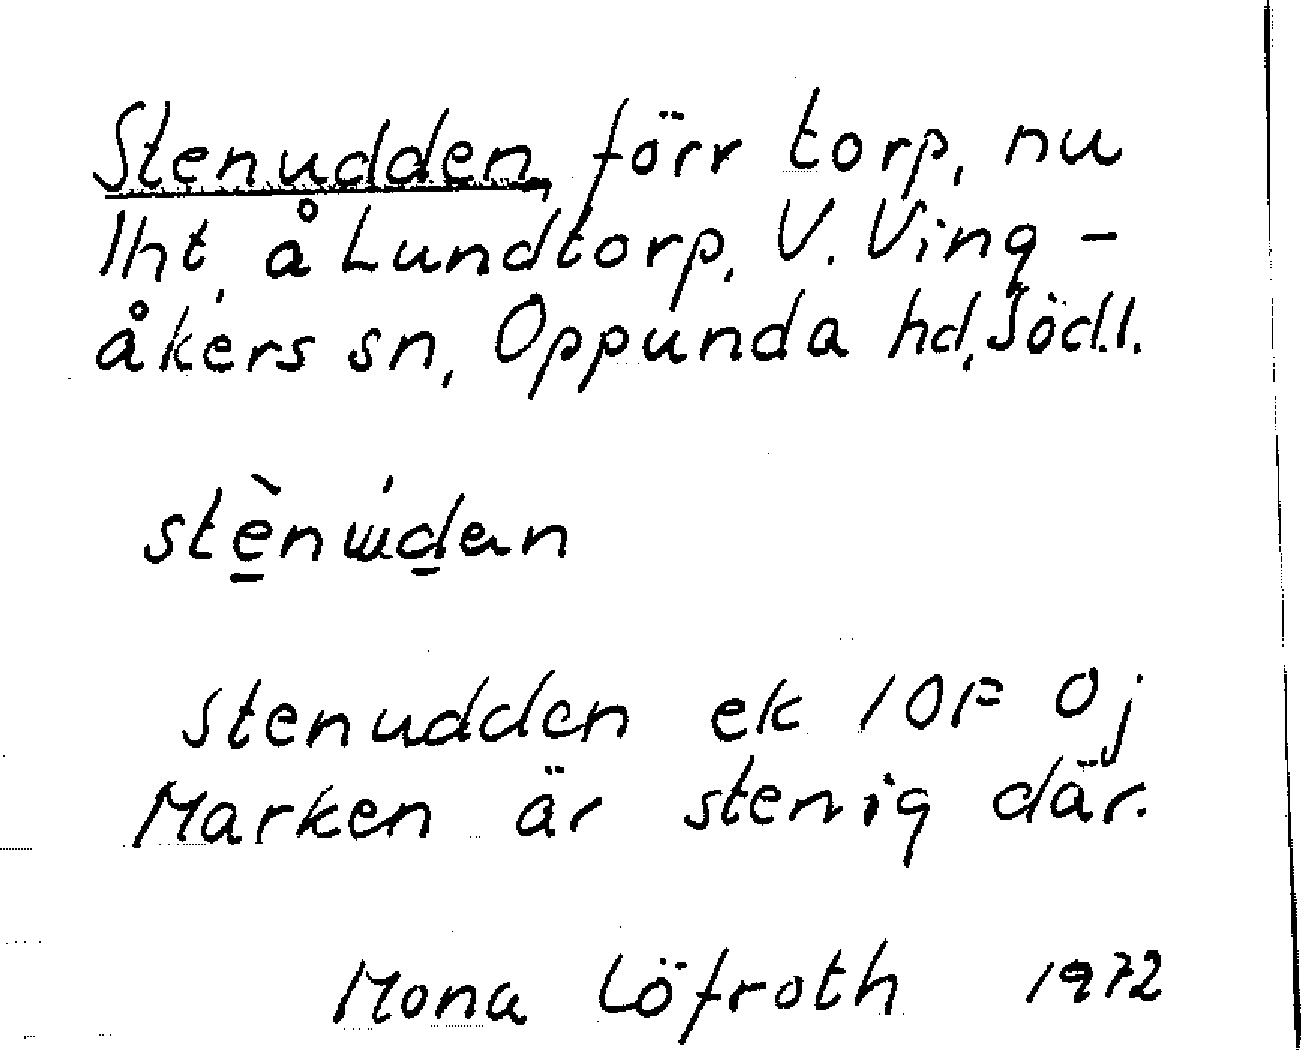 Stenudden, förr torp, nu
lht, å Lundtorp, V. Ving-
åkers sn, Oppunda hd, Södl.
Stenudden ek 10F 0j
Marken är stenig där.
Mona Löfroth 1972